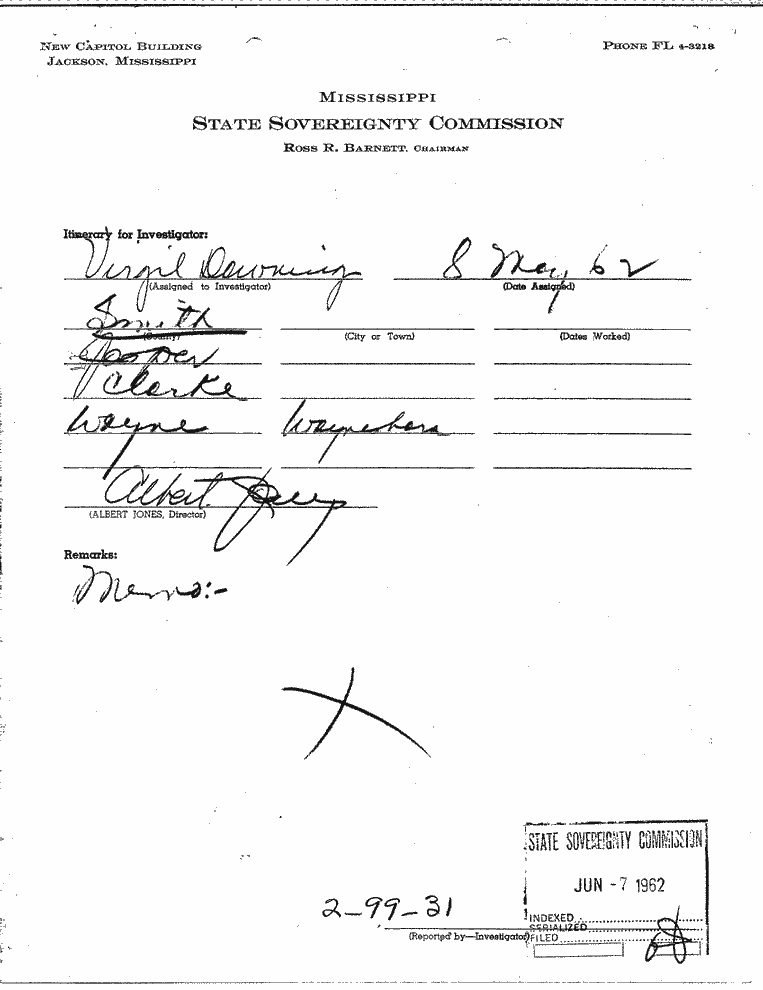 NEW CAPITOL BUILDING
JACKSON, MISSISSIPPI
PHONE FL 4-3218
MISSISSIPPI
STATE SOVEREIGNTY COMMISSION
ROSS R. BARNETT, CHAIRMAN
Itinerary for Investigator:
Virgil Downing 8 May, 62
(Assigned to Investigator) (Date Assigned)
Smith
(County) (City or Town) (Dates Worked)
Jasper
Clarke
Wayne Waynesboro
Albert Jones
(ALBERT JONES, Director)
Remarks:
Memo:-
STATE SOVEREIGNTY COMMISSION
JUN -7 1962
2-99-31
INDEXED
SERIALIZED
(Reported by—Investigator) FILED